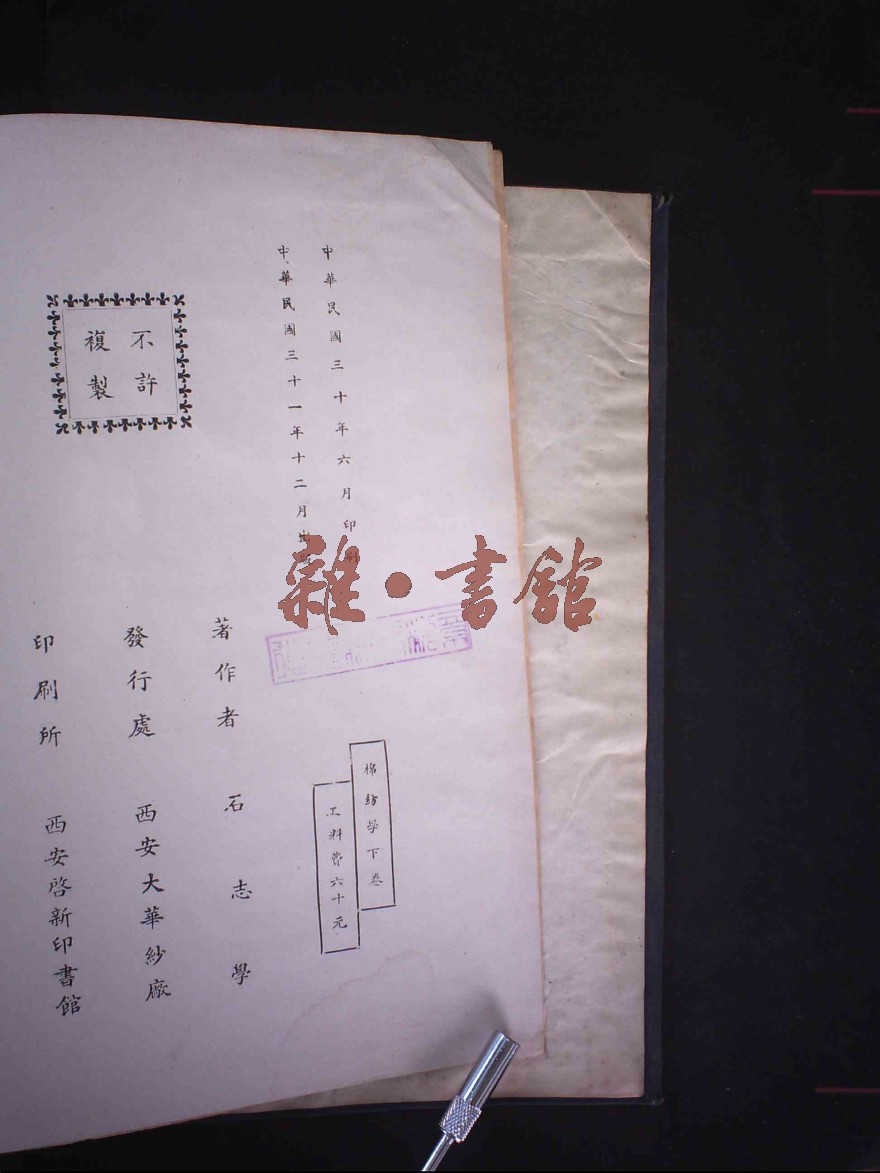 中華民國三十年六月印刷
中華民國三十一年十二月出
不許
複製
棉紡學下卷
工料費六十元
著作者 石志學
發行處 西安大華紗廠
印刷所 西安啓新印書館
雜·書館